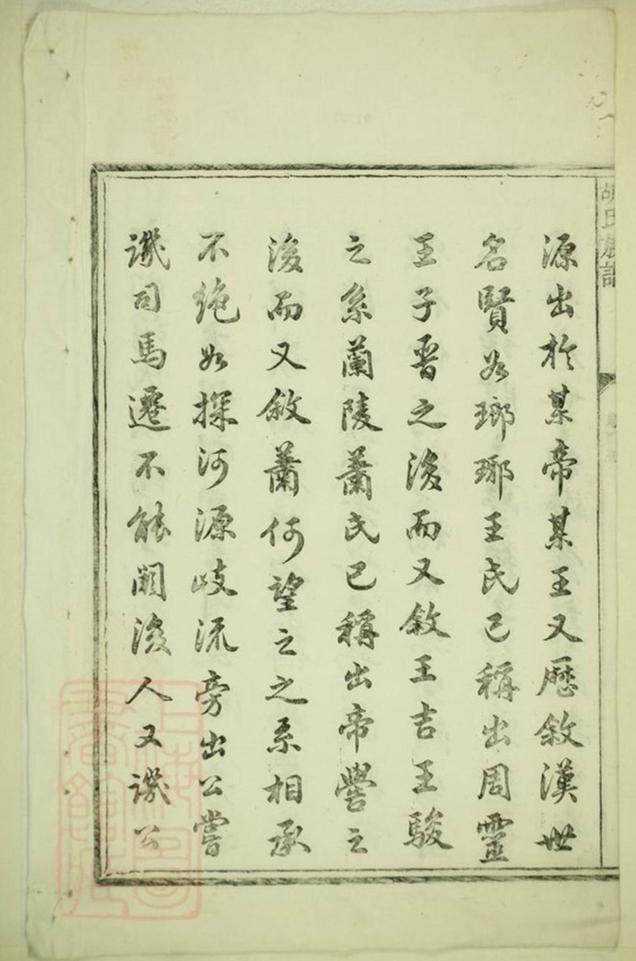 胡氏族譜
源出於某帝某王又歷敘漢世
名賢如瑯琊王氏已稱出周靈
王子晉之後而又敘王吉王駿
之系蘭陵蕭氏已稱出帝嚳之
後而又敘蕭何望之之系相承
不絶如探河源歧流旁出公嘗
譏司馬遷不能闕後人又譏公